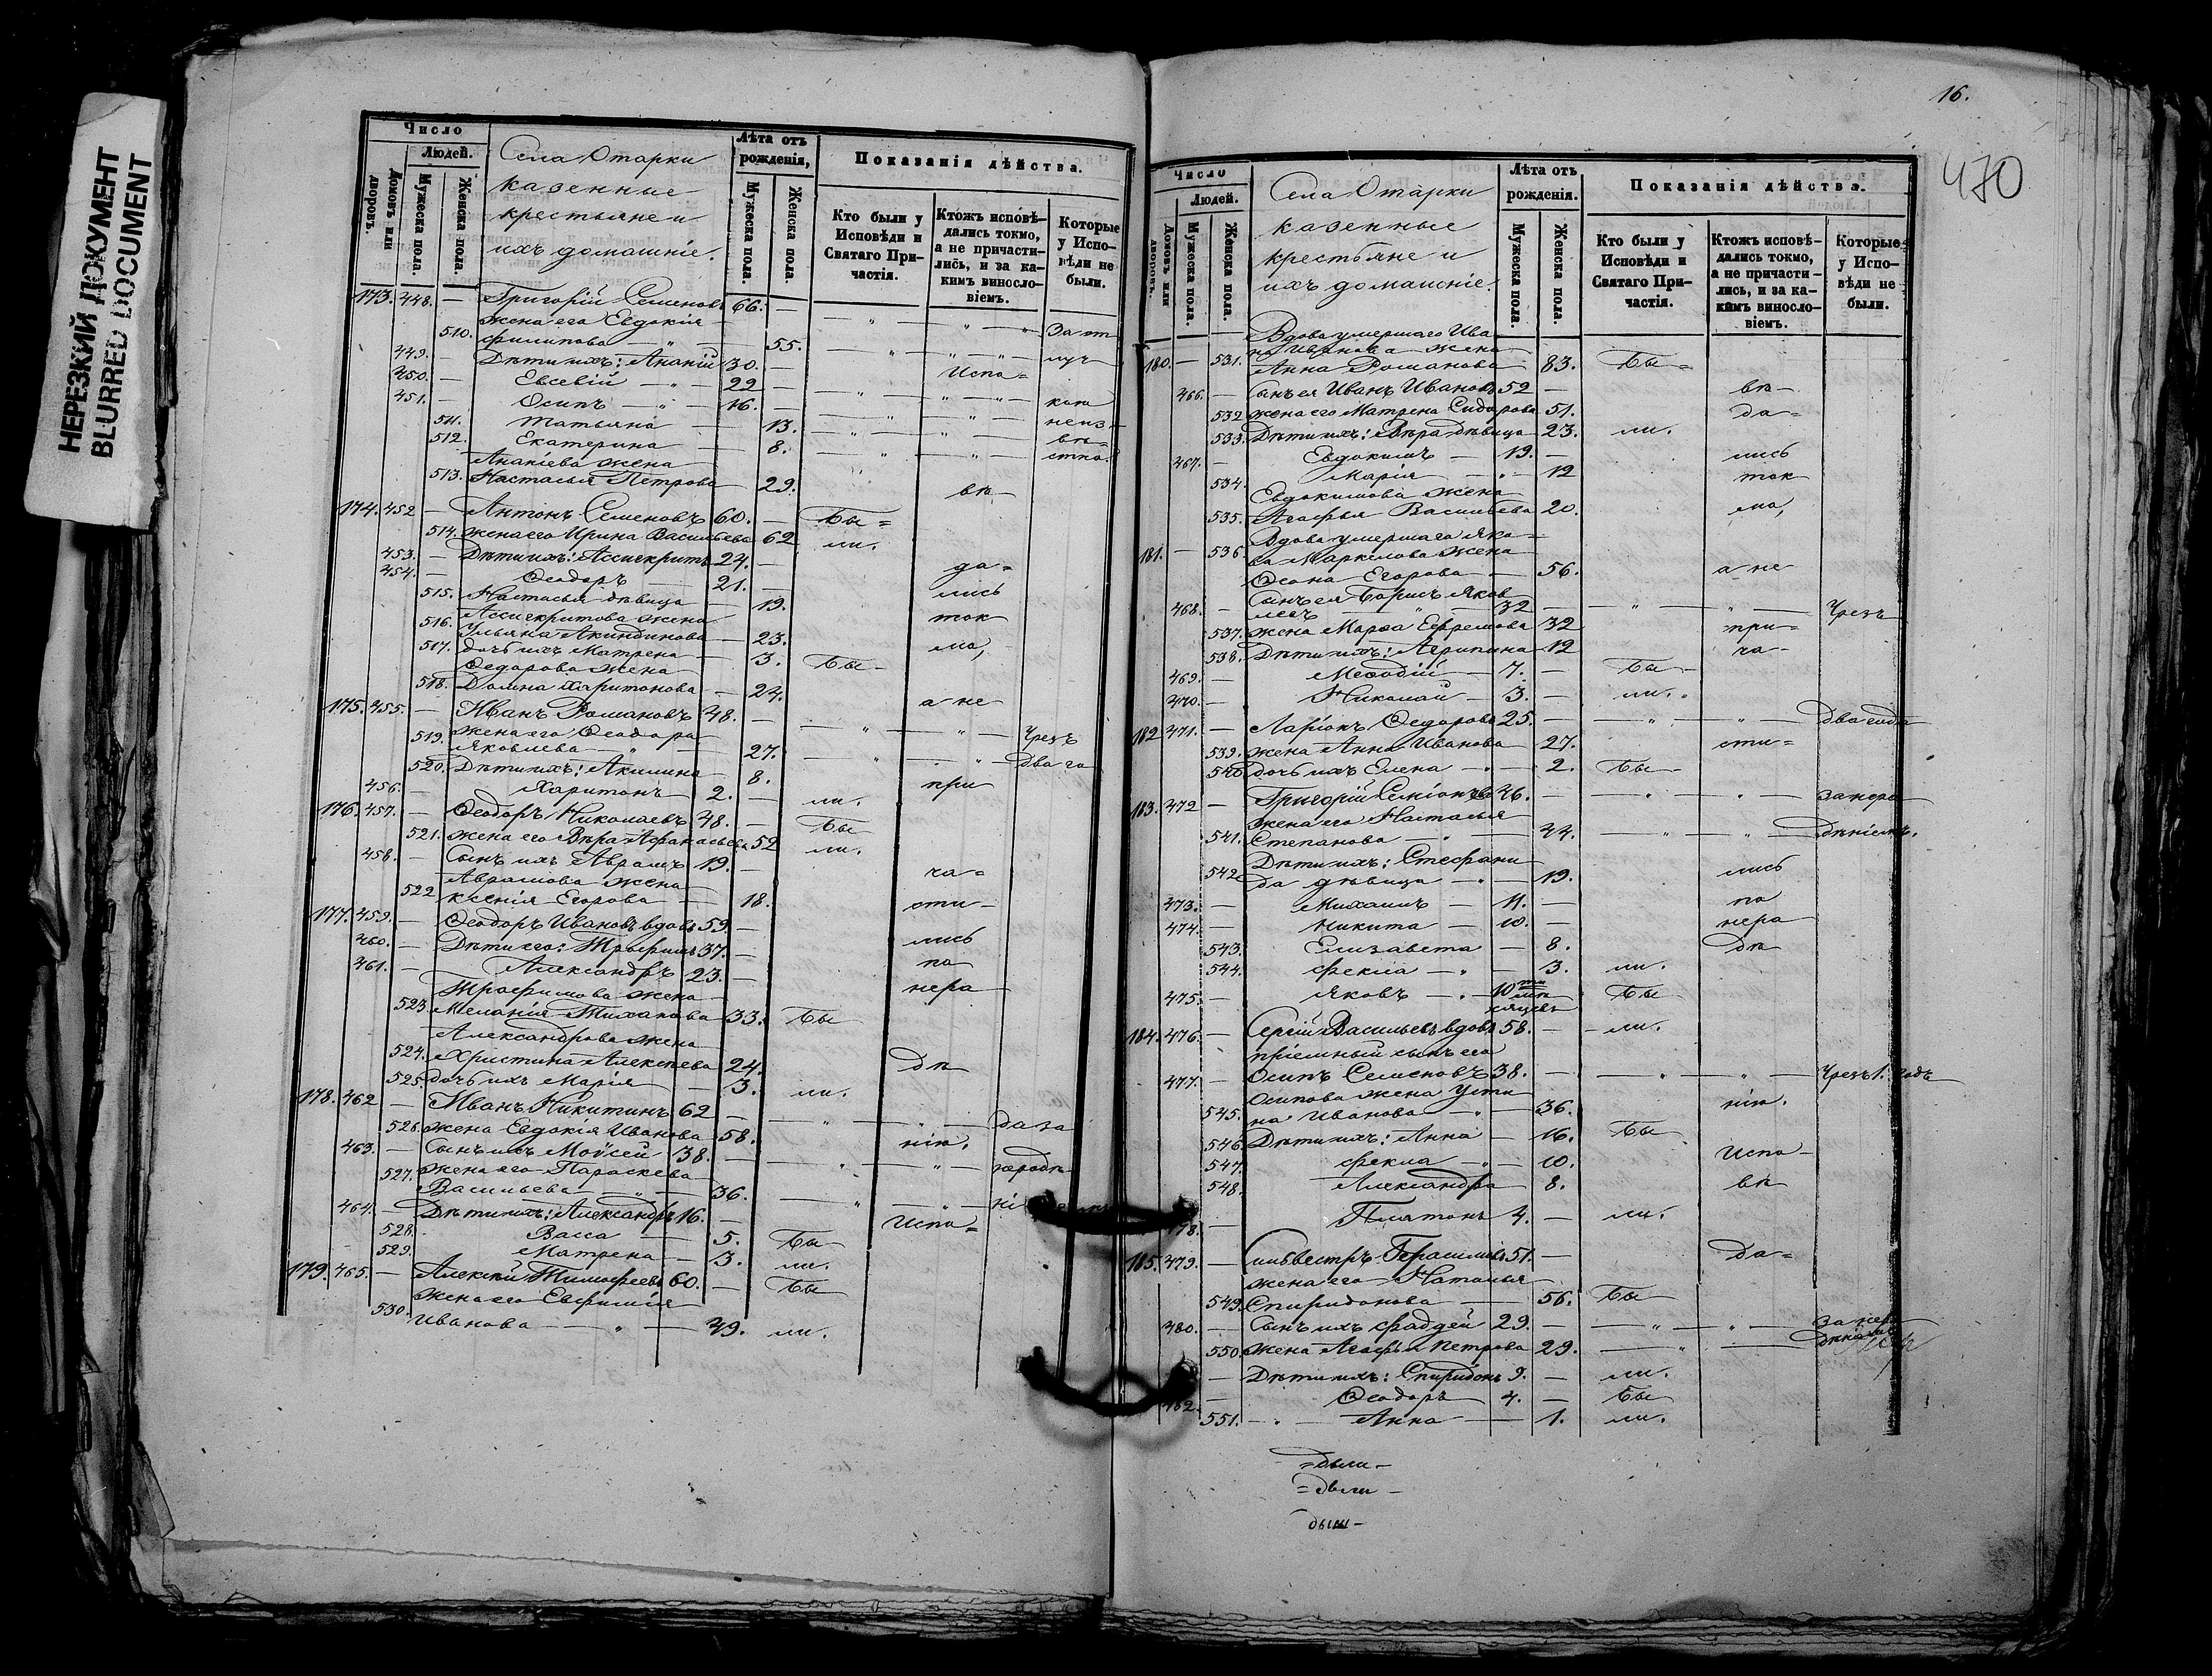 НЕРЕЗКИЙ ДОКУМЕНТ
BLURRED DOCUMENT
Число
Людей.
Домовъ или дворовъ.
Мужеска пола.
Женска пола.
Села Отарки
казенные
крестьяне и
ихъ домашніе.
Лѣта отъ рожденія,
Мужеска пола.
Женска пола.
Показанія дѣйства.
Кто были у Исповѣди и Святаго Причастія.
Ктожъ исповѣдались токмо, а не причастились, и за какимъ винословіемъ.
Которые у Исповѣди не были.
173. 448. — Григорій Семеновъ 66. —
жена его Евдокія
510. Филипова — " — 55. За от
449. — Дѣти ихъ: Ананій 30. — луч
450. — Евсевій — " — 29 — Испо=
451. — Осипъ — " — 16. — кою
511. Татьяна — 13. неиз
512. Екатерина — 8. вѣ=
Ананіева жена стно.
513. Настасья Петрова 29. вѣ—
174. 452 — Антонъ Семеновъ 60. — Бы=
514. жена его Ирина Васильева 62 ли.
453. — Дѣти ихъ: Ассигкритъ 24. —
454. — Ѳеодоръ 21. — да=
515. Настасья дѣвица — 19. лись
Ассигкритова жена
516. Ульяна Акиндинова — 23. ток
517. дочь ихъ Матрена — 3. Бы— мо,
Ѳедорова жена
518. Домна Харитонова — 24.
175. 455. — Иванъ Романовъ 48. — а не
жена его Ѳеодора
519. Яковлева — " — 27. Чрезъ
520. Дѣти ихъ: Акилина 8. два го
456. — Харитонъ 2. — ли. при
176. 457. — Ѳеодоръ Николаевъ 48. — Бы
521. жена его Вѣра Афанасьева 52 ли.
458. — Сынъ ихъ Аврамъ 19. —
Аврамова жена ча=
522 Ксенія Егорова — 18. сти—
177. 459. — Ѳеодоръ Ивановъ вдовъ 59. —
460. — Дѣти его: Трофимъ 37. — лись
461. — Александръ 23. — по
Трофимова жена нера
523. Меланія Тихонова 33. Бы
Александрова жена
524. Христина Алексѣева 24. дѣ
525. дочь ихъ Марія — 3. ли.
178. 462 — Иванъ Никитинъ 62 —
526. жена Евдокія Иванова 58. да за
463. — Сынъ ихъ Моѵсей 38. — нію.
527. жена его Параскева нерадѣ
Васильева — " — 36.
464. — Дѣти ихъ: Александръ 16. — ні
528. Васса — 5. Бы Испо=
529. Матрена — 3. ли.
179. 465. — Алексѣй Тимофеевъ 60. — Бы
жена его Евфимія
530. Иванова — " — 49. ли.
16.
470
Число
Людей.
Домовъ или дворовъ.
Мужеска пола.
Женска пола.
Села Отарки
казенные
крестьяне и
ихъ домашніе.
Лѣта отъ рожденія.
Мужеска пола.
Женска пола.
Показанія дѣйства.
Кто были у Исповѣди и Святаго Причастія.
Ктожъ исповѣдались токмо, а не причастились, и за какимъ винословіемъ.
Которые у Исповѣди не были.
Вдова умершаго Ива
на Иванова жена
180. — 531. Анна Романова 83. Бы=
466. — Сынъ ея Иванъ Ивановъ 52 — вѣ—
532 жена его Матрена Сидорова 51. да=
533. Дѣти ихъ: Вѣра дѣвица 23. ли.
467. — Евдокимъ — 19. — лись
534. Марія — " — 12 ток
Евдокимова жена
535. Агафья Васильева 20. мо,
Вдова умершаго Яко=
181. — 536. ва Маркелова жена
Ѳеона Егорова — 56. а не
Сынъ ея Борисъ Яков
468. — левъ — " — 32 — Чрезъ
537. жена Марѳа Ефремова 32 при=
538. Дѣти ихъ: Агрипина 12 ча—
469. — Меѳодій — 7. — Бы—
470. — Николай — 3. — ли.
182 471. — Ларіонъ Ѳедоровъ 25. — два года
539. жена Анна Иванова 27. сти=
540 дочь ихъ Елена — " — 2. Бы—
183. 472 — Григорій Семіоновъ 46. — за нера
жена его Настасья
541. Степанова — " — 44. дѣніемъ.
Дѣти ихъ: Стефани
542. да дѣвица — " — 19. лись
473. — Михаилъ — 11. — по
474. — Никита — 10. — нера
543. Елизавета — 8. дѣ
544. Фекла — " — 3. ли.
475. — Яковъ — " — 10ти мѣсяцевъ Бы
184. 476. — Сергій Васильевъ вдовъ 58. — ли.
пріемный сынъ его
477. — Осипъ Семеновъ 38. — Чрезъ 1. годъ
Осипова жена Усти
545. на Иванова — " — 36. нію.
546. Дѣти ихъ: Анна — 16. Бы
547. Фекла — " — 10. Испо—
548. Александра 8. вѣ
478. — Платонъ 4. — ли.
185. 479. — Сильвестръ Герасимовъ 51. — да=
жена его Наталья
549. Спиридонова — 56. Бы
480. — Сынъ ихъ Фаддей 29. — за нера
550. жена Агафья Петрова 29. дѣніемъ
— Дѣти ихъ: Спиридонъ 9. — ли.
482. — Ѳеодоръ 4. — Бы
551. — " — Анна — 1. ли.
=были—
=были—
были—